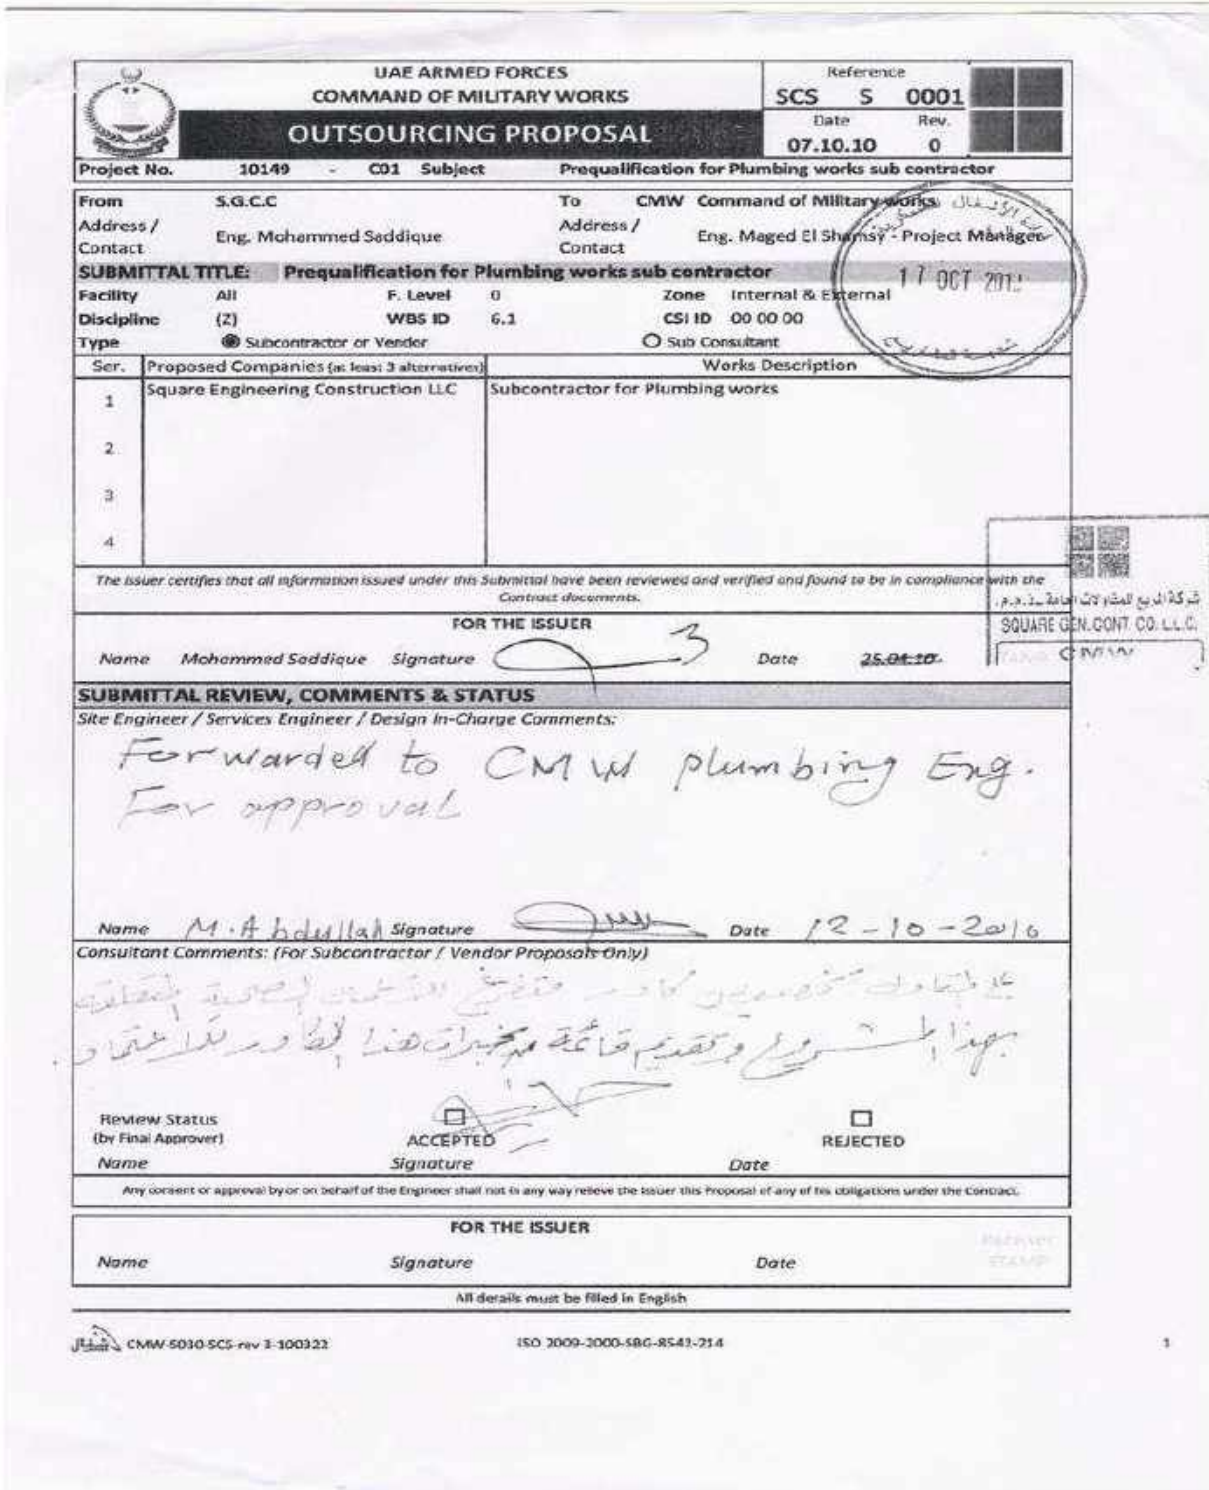 UAE ARMED FORCES
COMMAND OF MILITARY WORKS
OUTSOURCING PROPOSAL
Reference
SCS S 0001
Date Rev.
07.10.10 0
Project No. 10149 - C01 Subject Prequalification for Plumbing works sub contractor
From S.G.C.C To CMW Command of Military works
Address / Contact Eng. Mohammed Saddique Address / Contact Eng. Maged El Shamsy - Project Manager
17 OCT
SUBMITTAL TITLE: Prequalification for Plumbing works sub contractor
Facility All F. Level 0 Zone Internal & External
Discipline (Z) WBS ID 6.1 CSI ID 00 00 00
Type Subcontractor or Vendor Sub Consultant
Ser. Proposed Companies (as least 3 alternatives) Works Description
1 Square Engineering Construction LLC Subcontractor for Plumbing works
2
3
4
The issuer certifies that all information issued under this Submittal have been reviewed and verified and found to be in compliance with the
Contract documents.
شركة المربع للمقاولات العامة ذ.م.م.
SQUARE GEN.CONT. CO. L.L.C.
CMW
FOR THE ISSUER
Name Mohammed Saddique Signature Date 25.04.10.
SUBMITTAL REVIEW, COMMENTS & STATUS
Site Engineer / Services Engineer / Design In-Charge Comments:
Forwarded to CMW plumbing Eng.
For approval
Name M.Abdullah Signature Date 12-10-2010
Consultant Comments: (For Subcontractor / Vendor Proposals Only)
بهذا المشروع وتقديم قائمة هذا
Review Status
(by Final Approver) ACCEPTED REJECTED
Name Signature Date
Any consent or approval by or on behalf of the Engineer shall not in any way relieve the issuer this Proposal of any of his obligations under the Contract.
FOR THE ISSUER
Name Signature Date
STAMP
All details must be filled in English
CMW-5030-SCS-rev 3-100322 ISO 2009-2000-SBG-8542-214 1